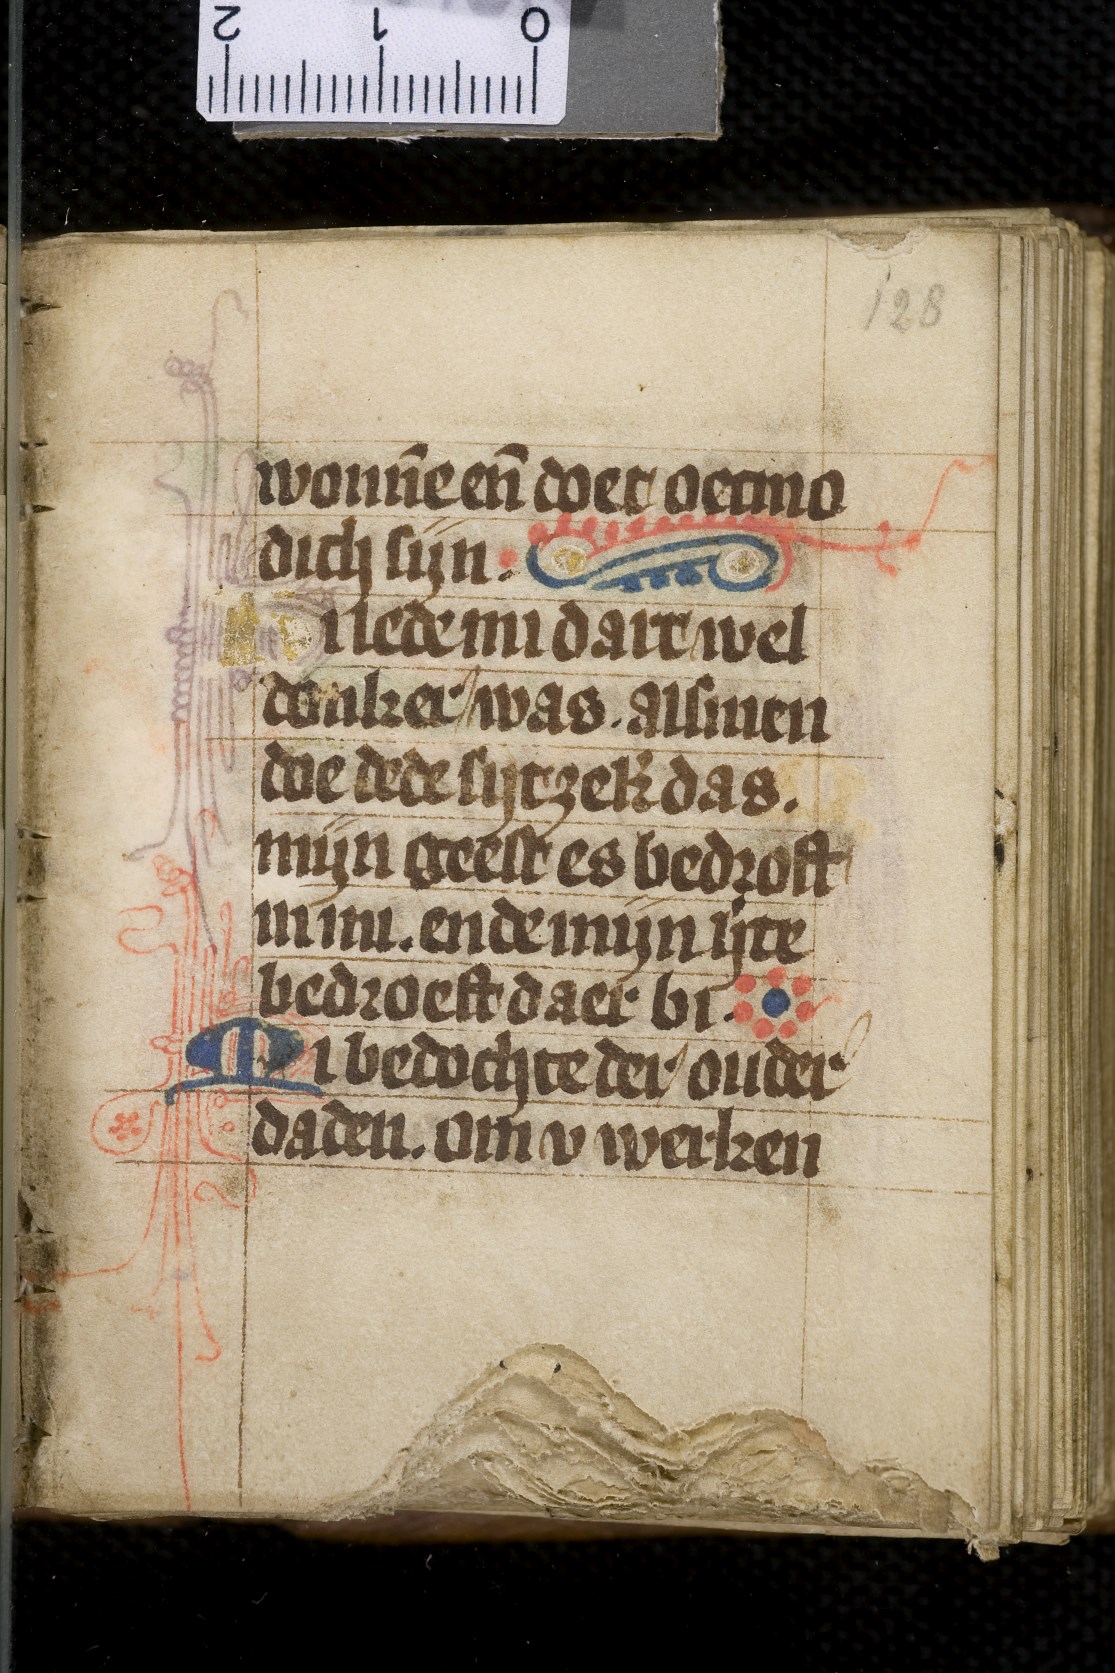 2 1 0
128
wonn̄e en̄ doet oetmo
dich sijn.
Hi lede mi dair wel
donker was. alsmen
doe dede sijt zek̄ das.
mijn geest es bedroft
in mi. ende mijn ijte
bedroeft daer bi.
Mi bedochte der ouder
daden. om v werken